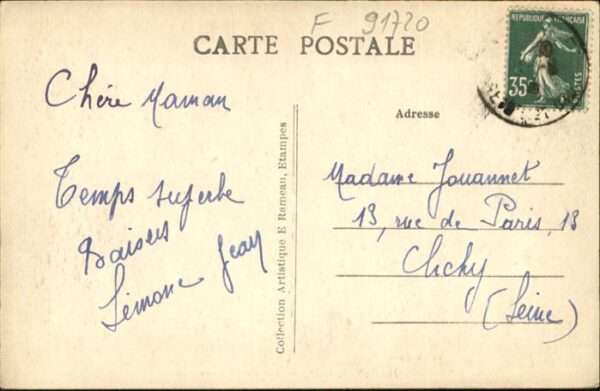 F 91720
CARTE POSTALE
RÉPUBLIQUE FRANÇAISE
35c
POSTES
Chère Maman
Temps superbe
Baisers
Simone Jean
Collection Artistique E Rameau, Etampes
Adresse
Madame Jouannet
13, rue de Paris, 13
Clichy
(Seine)